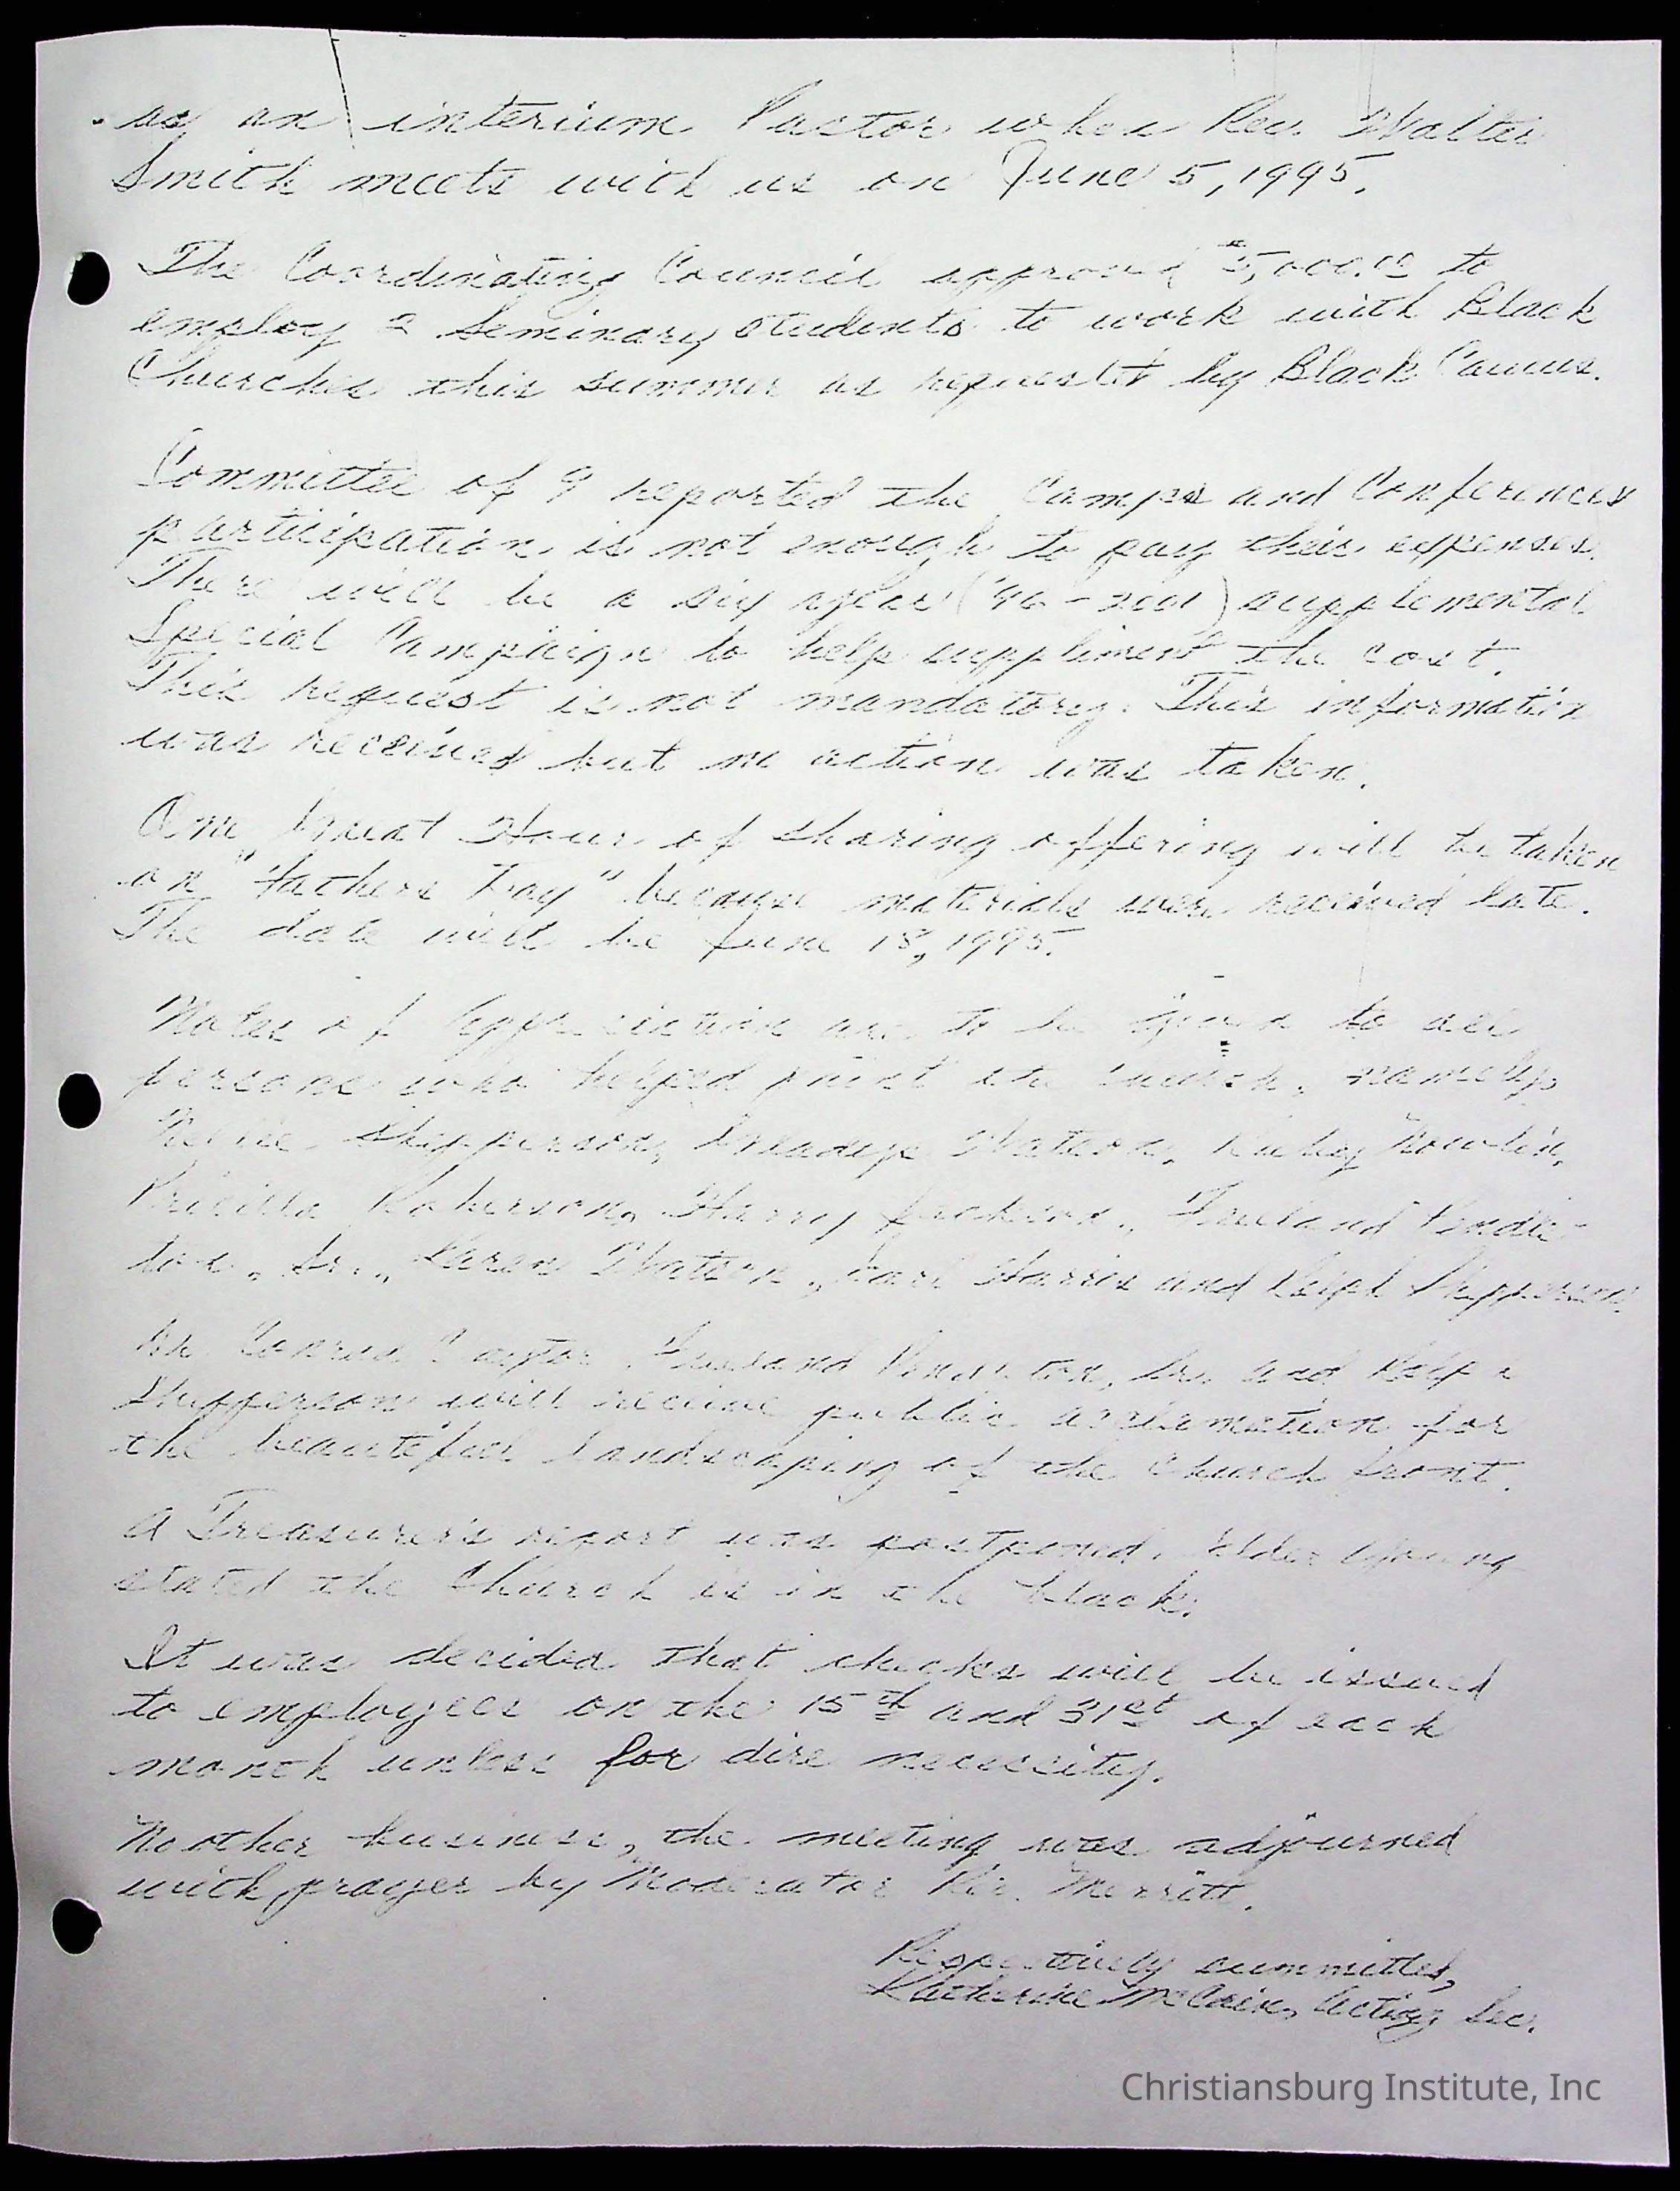 as an interium Pastor when Rev. Walter
Smith meets with us on June 5, 1995.
The Coordinating Council approved $5,000.00 to
employ 2 Seminary students to work with Black
Churches this summer as requested by Black Caucus.
Committee of 9 reported the Camps and Conferences
participation is not enough to pay their expenses.
There will be a six year ('96-2001) supplemental
Special Campaign to help suppliment the cost.
This request is not mandatory. This information
was received but no action was taken.
One Great Hour of Sharing offering will be taken
on "Fathers Day" because materials were received late.
The date will be June 18, 1995.
Notes of Appreciation are to be given to all
persons who helped paint the church, namely,
Nellie Shepperson, Watson, Ruby Nowlin,
Pricilla Roberson, Harry Jackson, Freeland Pendle-
ton, Sr., Karen Watson, Earl Harris and Ralph Shepperson.
Freeland Pendleton, Sr. and Ralph
Shepperson will receive public acclamation for
the beautiful landscaping of the Church front.
A Treasurer's report was postponed. Elder Young
stated the Church is in the black.
It was decided that checks will be issued
to employees on the 15th and 31st of each
month unless for dire necessity.
No other business, the meeting was adjourned
with prayer by Moderator Rev. Merritt.
Respectively summitted,
Katherine McCain, Acting Sec.
Christiansburg Institute, Inc